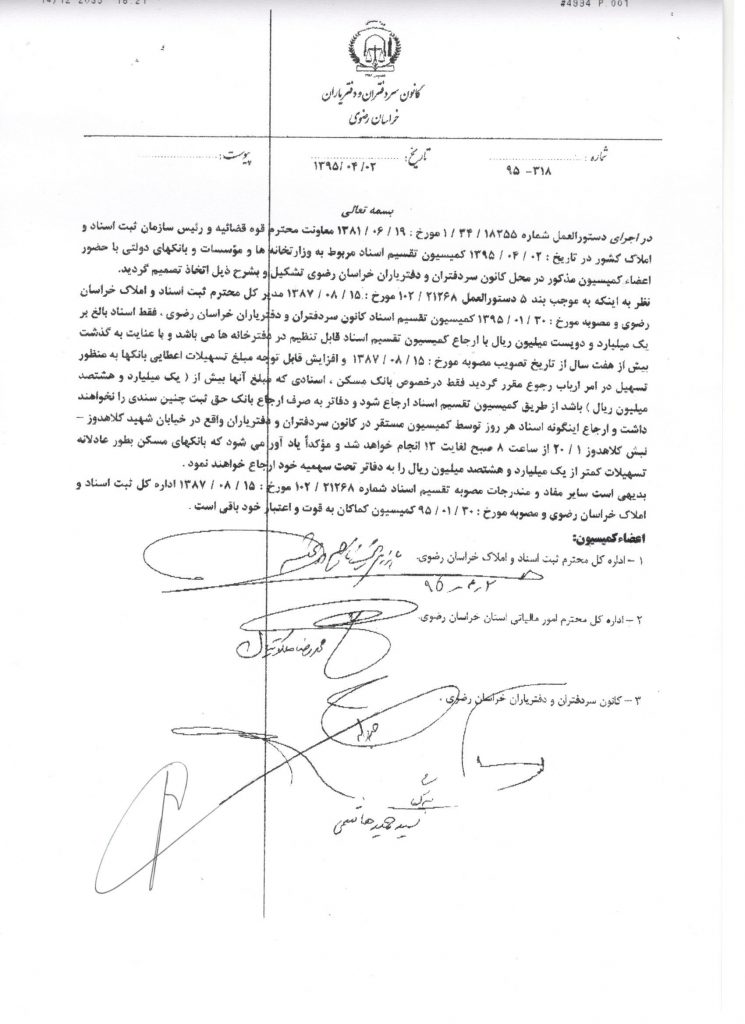 14/12 2035 16:21
#4994 P.001
کانون سردفتران و دفتریاران
خراسان رضوی
شماره :
۳۱۸- ۹۵
تاریخ:
۱۳۹۵/۰۴/۰۲
پیوست:
بسمه تعالی
در اجرای دستورالعمل شماره ۱۸۲۵۵ / ۳۴ / ۱ مورخ : ۱۹ / ۰۶ / ۱۳۸۱ معاونت محترم قوه قضائیه و رئیس سازمان ثبت اسناد و
املاک کشور در تاریخ : ۰۲ / ۰۴ / ۱۳۹۵ کمیسیون تقسیم اسناد مربوط به وزارتخانه ها و مؤسسات و بانکهای دولتی با حضور
اعضاء کمیسیون مذکور در محل کانون سردفتران و دفتریاران خراسان رضوی تشکیل و بشرح ذیل اتخاذ تصمیم گردید.
نظر به اینکه به موجب بند ۵ دستورالعمل ۲۱۲۶۸ / ۱۰۲ مورخ : ۱۵ / ۰۸ / ۱۳۸۷ مدیر کل محترم ثبت اسناد و املاک خراسان
رضوی و مصوبه مورخ : ۳۰ / ۰۱ / ۱۳۹۵ کمیسیون تقسیم اسناد کانون سردفتران و دفتریاران خراسان رضوی ، فقط اسناد بالغ بر
یک میلیارد و دویست میلیون ریال با ارجاع کمیسیون تقسیم اسناد قابل تنظیم در دفترخانه ها می باشد و با عنایت به گذشت
بیش از هفت سال از تاریخ تصویب مصوبه مورخ : ۱۵ / ۰۸ / ۱۳۸۷ و افزایش قابل توجه مبلغ تسهیلات اعطایی بانکها به منظور
تسهیل در امر ارباب رجوع مقرر گردید فقط درخصوص بانک مسکن ، اسنادی که مبلغ آنها بیش از ( یک میلیارد و هشتصد
میلیون ریال ) باشد از طریق کمیسیون تقسیم اسناد ارجاع شود و دفاتر به صرف ارجاع بانک حق ثبت چنین سندی را نخواهند
داشت و ارجاع اینگونه اسناد هر روز توسط کمیسیون مستقر در کانون سردفتران و دفتریاران واقع در خیابان شهید کلاهدوز –
نبش کلاهدوز ۱ / ۲۰ از ساعت ۸ صبح لغایت ۱۳ انجام خواهد شد و مؤکداً یاد آور می شود که بانکهای مسکن بطور عادلانه
تسهیلات کمتر از یک میلیارد و هشتصد میلیون ریال را به دفاتر تحت سهمیه خود ارجاع خواهند نمود .
بدیهی است سایر مفاد و مندرجات مصوبه تقسیم اسناد شماره ۲۱۲۶۸ / ۱۰۲ مورخ : ۱۵ / ۰۸ / ۱۳۸۷ اداره کل ثبت اسناد و
املاک خراسان رضوی و مصوبه مورخ : ۳۰ / ۰۱ / ۹۵ کمیسیون کماکان به قوت و اعتبار خود باقی است .
اعضاء کمیسیون:
۱ – اداره کل محترم ثبت اسناد و املاک خراسان رضوی.
۲ – اداره کل محترم امور مالیاتی استان خراسان رضوی.
۳ – کانون سردفتران و دفتریاران خراسان رضوی .
سید حمید هاشمی